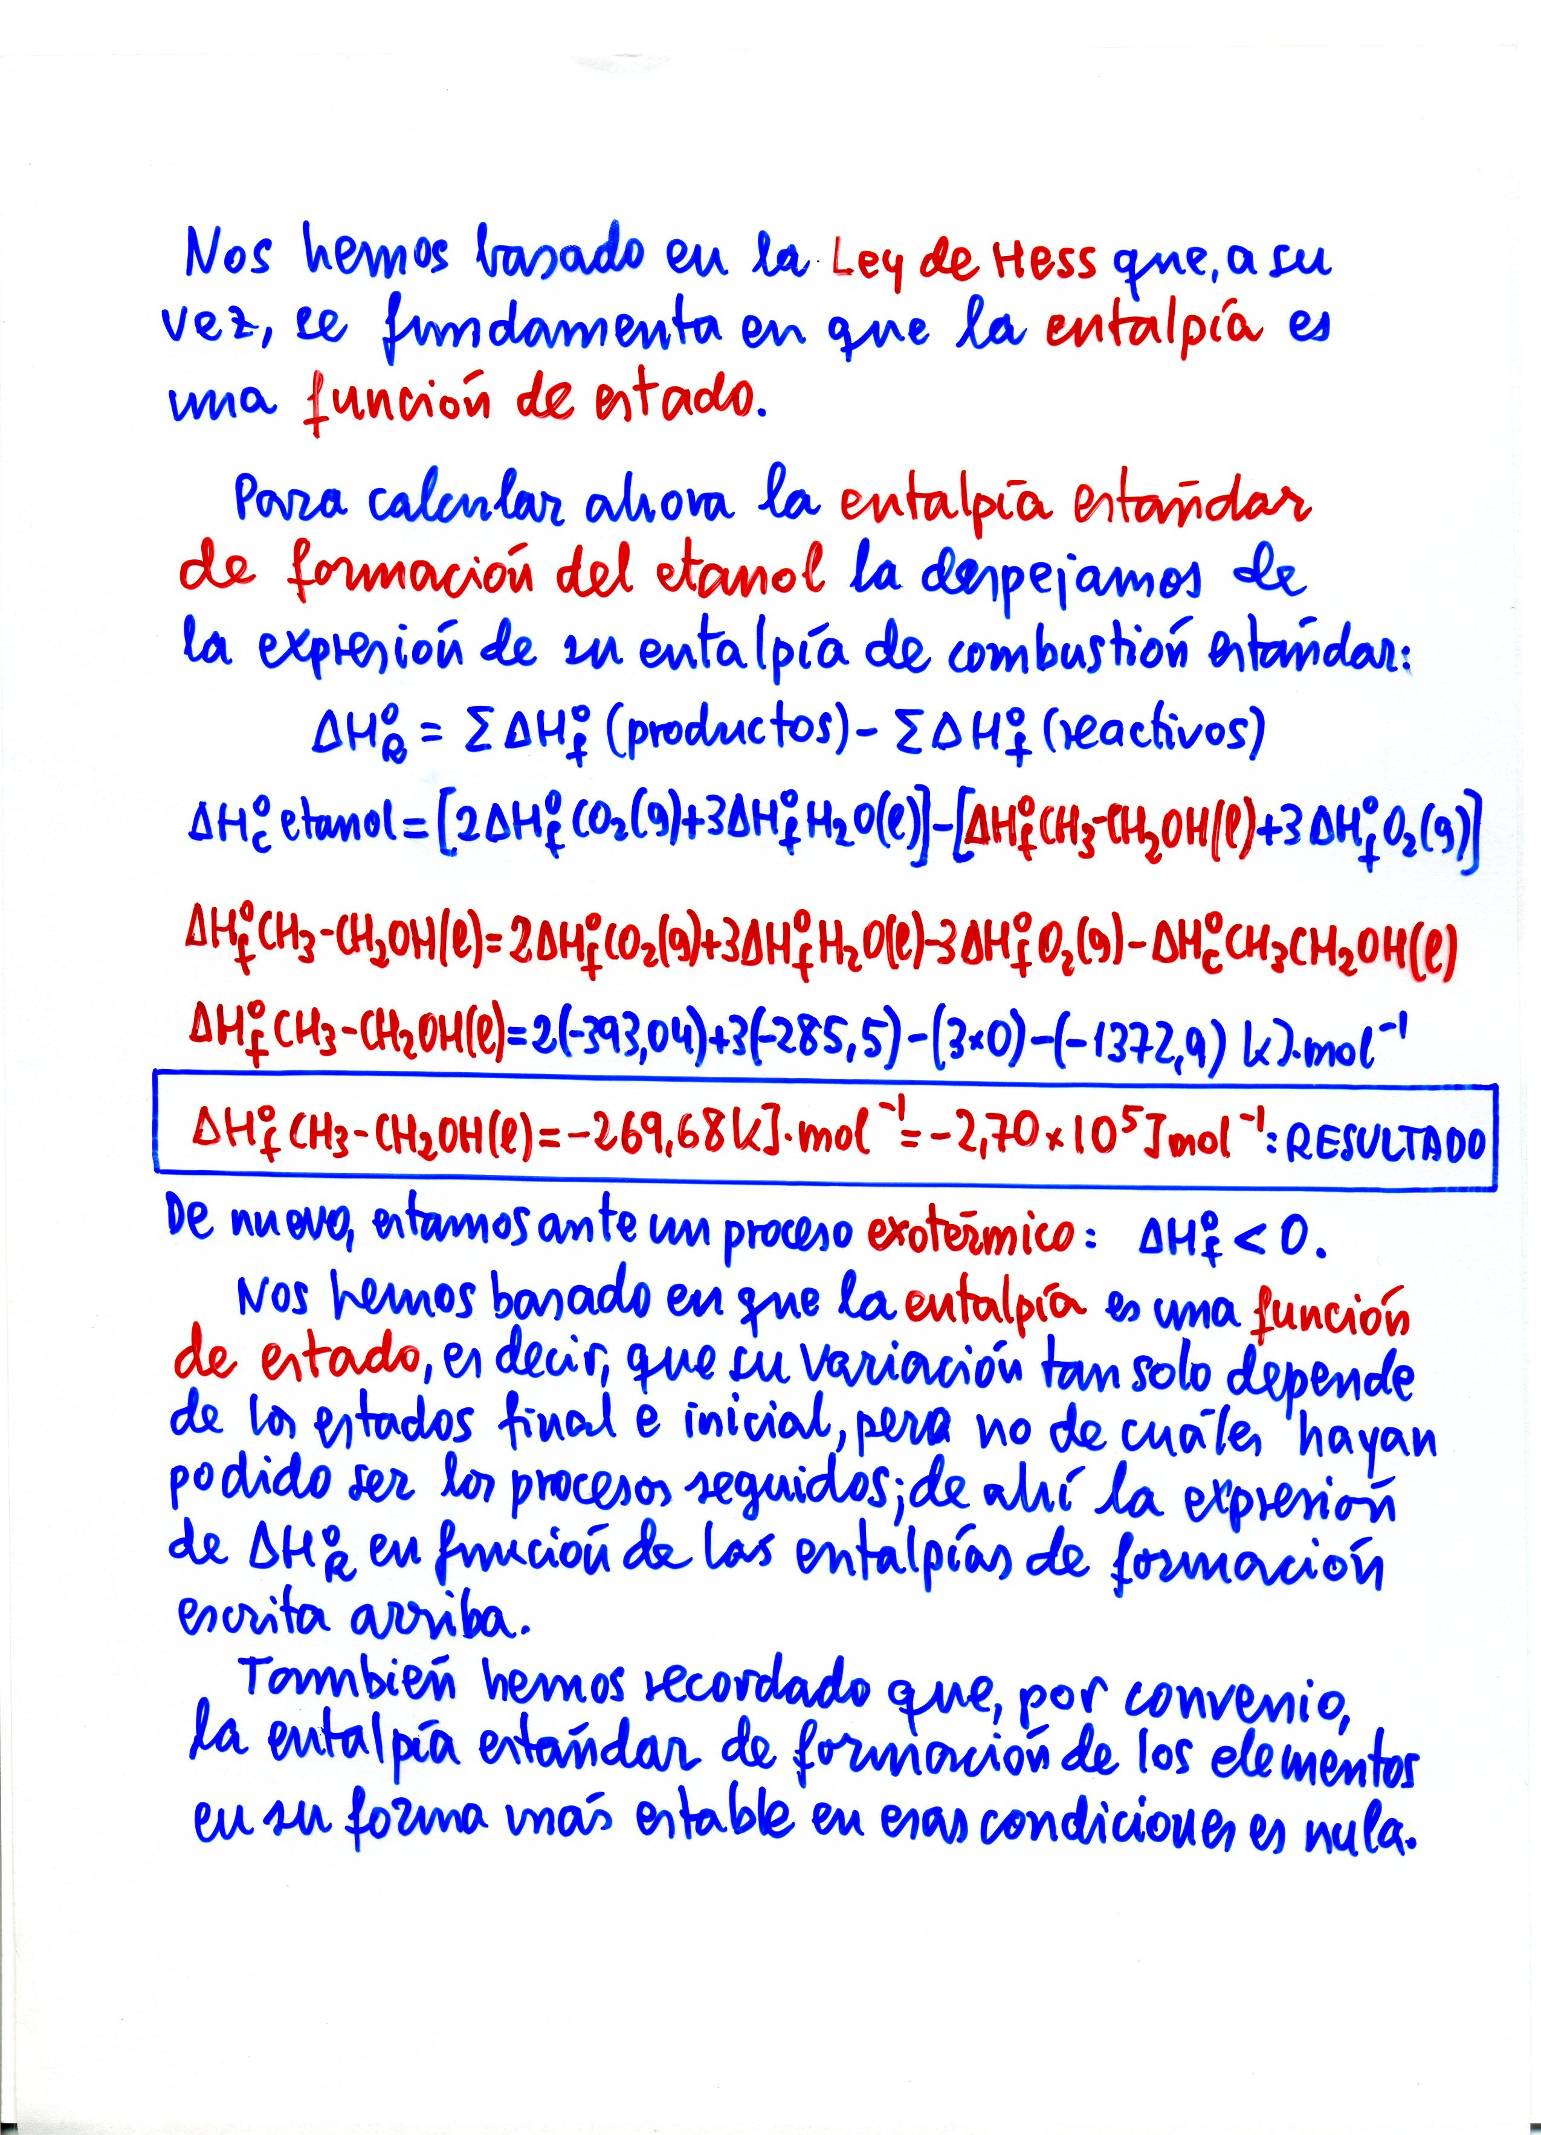 Nos hemos basado en la Ley de Hess que, a su
vez, se fundamenta en que la entalpía es
una función de estado.
Para calcular ahora la entalpía estándar
de formación del etanol la despejamos de
la expresión de su entalpía de combustión estándar:
ΔH°R = Σ ΔH°f (productos) - Σ ΔH°f (reactivos)
ΔH°c etanol = [2ΔH°f CO₂(g) + 3ΔH°f H₂O(l)] - [ΔH°f CH₃-CH₂OH(l) + 3ΔH°f O₂(g)]
ΔH°f CH₃-CH₂OH(l) = 2ΔH°f CO₂(g) + 3ΔH°f H₂O(l) - 3ΔH°f O₂(g) - ΔH°c CH₃CH₂OH(l)
ΔH°f CH₃-CH₂OH(l) = 2(-393,04) + 3(-285,5) - (3×0) - (-1372,9) kJ·mol⁻¹
ΔH°f CH₃-CH₂OH(l) = -269,68 kJ·mol⁻¹ = -2,70×10⁵ J mol⁻¹: RESULTADO
De nuevo, estamos ante un proceso exotérmico: ΔH°f < 0.
Nos hemos basado en que la entalpía es una función
de estado, es decir, que su variación tan solo depende
de los estados final e inicial, pero no de cuáles hayan
podido ser los procesos seguidos; de ahí la expresión
de ΔH°R en función de las entalpías de formación
escrita arriba.
También hemos recordado que, por convenio,
la entalpía estándar de formación de los elementos
en su forma más estable en esas condiciones es nula.